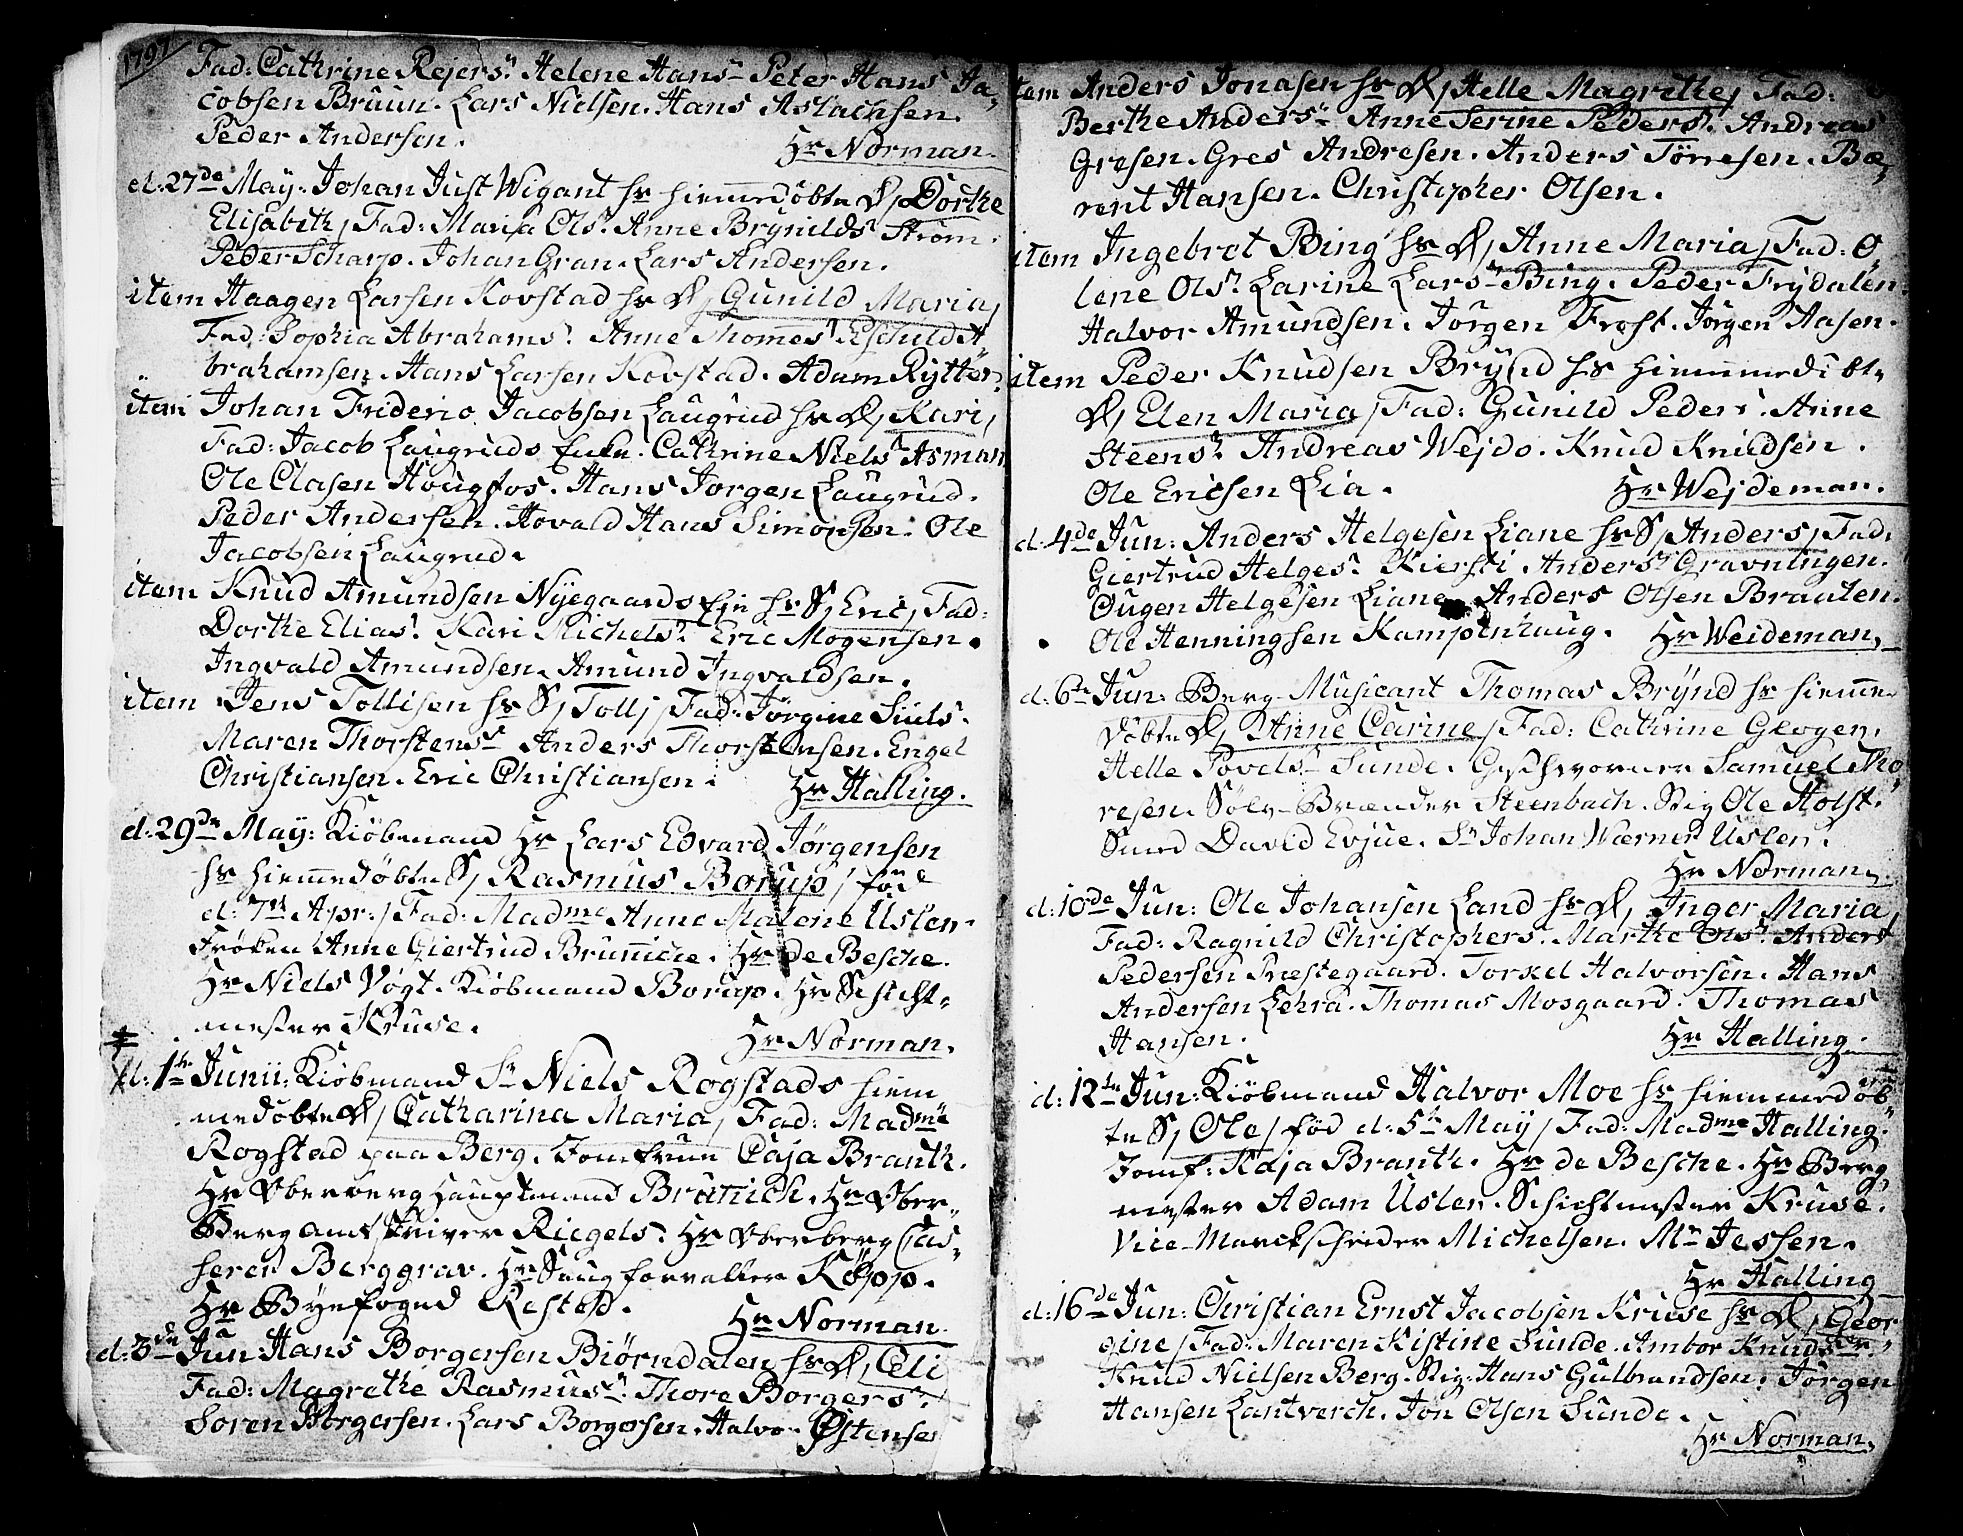 1791
Fad: Cathrine Rejersr Helene Hansr Peter Hans Ja-
cobsen Bruun. Lars Nielsen. Hans Aslachsen.
Peder Andersen.
Hr Norman.
d: 27de May: Johan Just Wigant hs hiemedøbte D, Dorthe
Elisabeth, Fad: Maria Olsr Anne Brynilds Strøm.
Peder Scharp. Johan Gran. Lars Andersen.
item Haagen Larsen Kovstad hs D, Gunild Maria,
Fad: Sophia Abrahamsr Anne Thomesr Eschild A-
brahamsen. Hans Larsen Kovstad. Adam Rytter.
item Johan Frideric Jacobsen Laugrud hs D, Kari,
Fad: Jacob Laugruds Enke. Cathrine Nielsr Asman
Ole Olasen Hougfos. Hans Jørgen Laugrud.
Peder Andersen. Hovald Hans Simonsen. Ole
Jacobsen Laugrud.
item Knud Amundsen Nyegaards Eje hs S, Eric, Fad:
Dorthe Eliasr Kari Michelsr Eric Mogensen.
Ingvald Amundsen. Amund Ingvaldsen.
item Jens Tollisen hs S, Tolli, Fad: Jørgine Siuls.
Maren Thorstensr Anders Thorstensen. Engel
Christiansen. Eric Christiansen.
Hr Halling.
d: 29de May: Kiøbmand Hr Lars Edvard Jørgensen
hs hiemedøbte S, Rasmus Borup, fød
d: 7de Apr:, Fad: Madme Anne Malene Uslen.
Frøken Anne Giertrud Brunnicke. Hr de Besche.
Hr Niels Vogt. Kiøbmand Borup. Hr Schicht-
mester Kruse.
Hr Norman.
d: 1te Junii: Kiøbmand Sr Niels Rogstads hiem
medøbte D, Catharina Maria, Fad: Madme
Rogstad paa Berg. Jomfrue Caja Branth.
Hr Oberberg Hauptmand Brünich. Hr Ober-
Bergamtskriver Riegels. Hr Oberberg Cas-
serer Berggrav. Hr Saugforvalter Køpp.
Hr Byefogud Restad.
Hr Norman.
d: 3de Jun: Hans Borgersen Biørndalen hs D, Celi
Fad: Magrethe Rasmusr Thore Borgersr
Søren Borgersen. Lars Borgersen. Halvor Østense
item Anders Jonasen hs D, Helle Magrethe, Fad:
Berthe Andersr Anne Serine Pedersr Andreas
Gresen. Gres Andresen. Anders Tørresen. Bæ-
rent Hansen. Christopher Olsen.
item Ingebrot Bing hs D, Anne Maria, Fad: O-
lene Olsr Larine Larsr Bing. Peder Frydalen
Halvor Amundsen. Jørgen Frost. Jørgen Aasen.
item Peder Knudsen Brynd hs hiemmedøbte
D, Elen Maria, Fad: Gunild Pedersr Anne
Steensr Andreas Wejdo. Knud Knudsen.
Ole Ericsen Lia.
Hr Wejdeman.
d: 4de Jun: Anders Helgesen Liane hs S, Anders, Fad:
Giertrud Helgesr Kiersti Andersr Gravningen.
Ougen Helgesen Liane. Anders Olsen Braaten.
Ole Henningsen Kampenhaug.
Hr Weideman.
d: 6te Jun: Berg-Musicant Thomas Brynd hs hieme
døbte D, Anne Carine, Fad: Cathrine Geogen,
Helle Povelsr Sunde. Geschworner Samuel Tho
resen. Sølv-Brænder Steenbach. Stig Ole Holst.
Smed David Evjue. Sr Johan Wærner Uslen.
Hr Norman.
d: 10de Jun: Ole Johansen Land hs D, Inger Maria,
Fad: Ragnild Christophersr Marthe Olsr Anders
Pedersen Prestegaard. Torkel Halvorsen. Hans
Andersen Lehra. Thomas Mosgaard. Thomas
Hansen.
Hr Halling.
d: 12te Jun: Kiøbmand Halvor Moe hs hiemmedøb-
te S, Ole, fød d: 5te May, Fad: Madme Halling.
Jomf: Kaja Branth. Hr de Besche. Hr Berg-
mester Adam Uslen. Schichtmester Kruse.
Vice-Markscheider Michelsen. Mr Jessen.
Hr Halling
d: 16de Jun: Christian Ernst Jacobsen Kruse hs D, Geor
gine, Fad: Maren Kistine Sunde. Ambor Knudsr.
Knud Nielsen Berg. Stig: Hans Gulbrandsen. Jørgen
Hansen Lantverch. Jon Olsen Sunde.
Hr Norman.